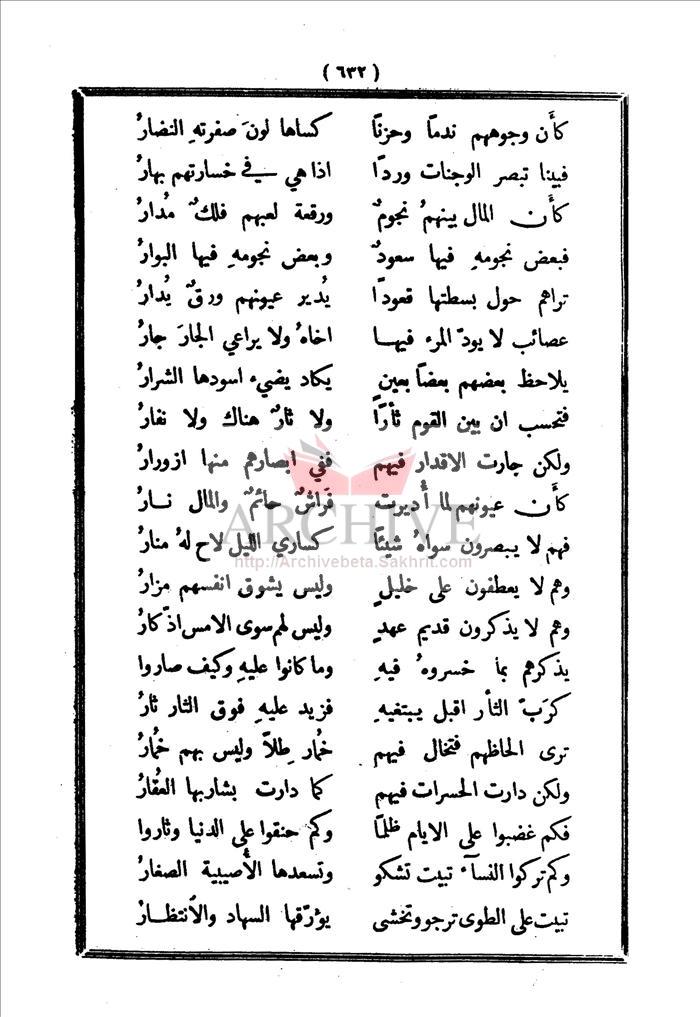 ( ٦٣٢ )
كأَن وجوههم ندمًا وحزنًا كساها لونَ صفرتهِ النضارُ
فبينا تبصر الوجنات وردًا اذا هي في خسارتهم بهارُ
كأَن المال بينهمُ نجومٌ ورقعة لعبهم فلكٌ مُدارُ
فبعض نجومهِ فيها سعودٌ وبعض نجومهِ فيها البوارُ
تراهم حول بسطتها قعودًا يُدير عيونهم ورقٌ يُدارُ
عصائب لا يودّ المرء فيها اخاهُ ولا يراعي الجارَ جارُ
يلاحظ بعضهم بعضًا بعينٍ يكاد يضيء اسودها الشرارُ
فتحسب ان بين القوم ثأرًا ولا ثارٌ هناك ولا نفارُ
ولكن جارت الاقدار فيهم ففي ابصارهم منها ازورارُ
كأَن عيونهم لما أُديرت فَراشٌ حائمٌ والمال نارُ
فهم لا يبصرون سواهُ شيئًا كساري الليل لاح لهُ منارُ
وهم لا يعطفون على خليلٍ وليس يشوق انفسهم مزارُ
وهم لا يذكرون قديم عهدٍ وليس لهم سوى الامس اذّكارُ
يذكرهم بما خسروهُ فيهِ وما كانوا عليهِ وكيف صاروا
كرَبّ الثأر اقبل يبتغيهِ فزيد عليهِ فوق الثار ثارُ
ترى الحاظهم فتخال فيهم خُمار طِلاً وليس بهم خُمارُ
ولكن دارت الحسرات فيهم كما دارت بشاربها العُقارُ
فكم غضبوا على الايام ظلمًا وكم حنقوا على الدنيا وثاروا
وكم تركوا النسآء تبيت تشكو وتسعدها الأُصيبية الصغارُ
تبيت على الطوى ترجو وتخشى يؤرّقها السهاد والأنتظارُ
ARCHIVE
http://Archivebeta.Sakhrit.com